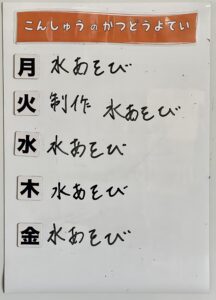 こんしゅうのかつどうよてい
月 水あそび
火 制作 水あそび
水 水あそび
木 水あそび
金 水あそび